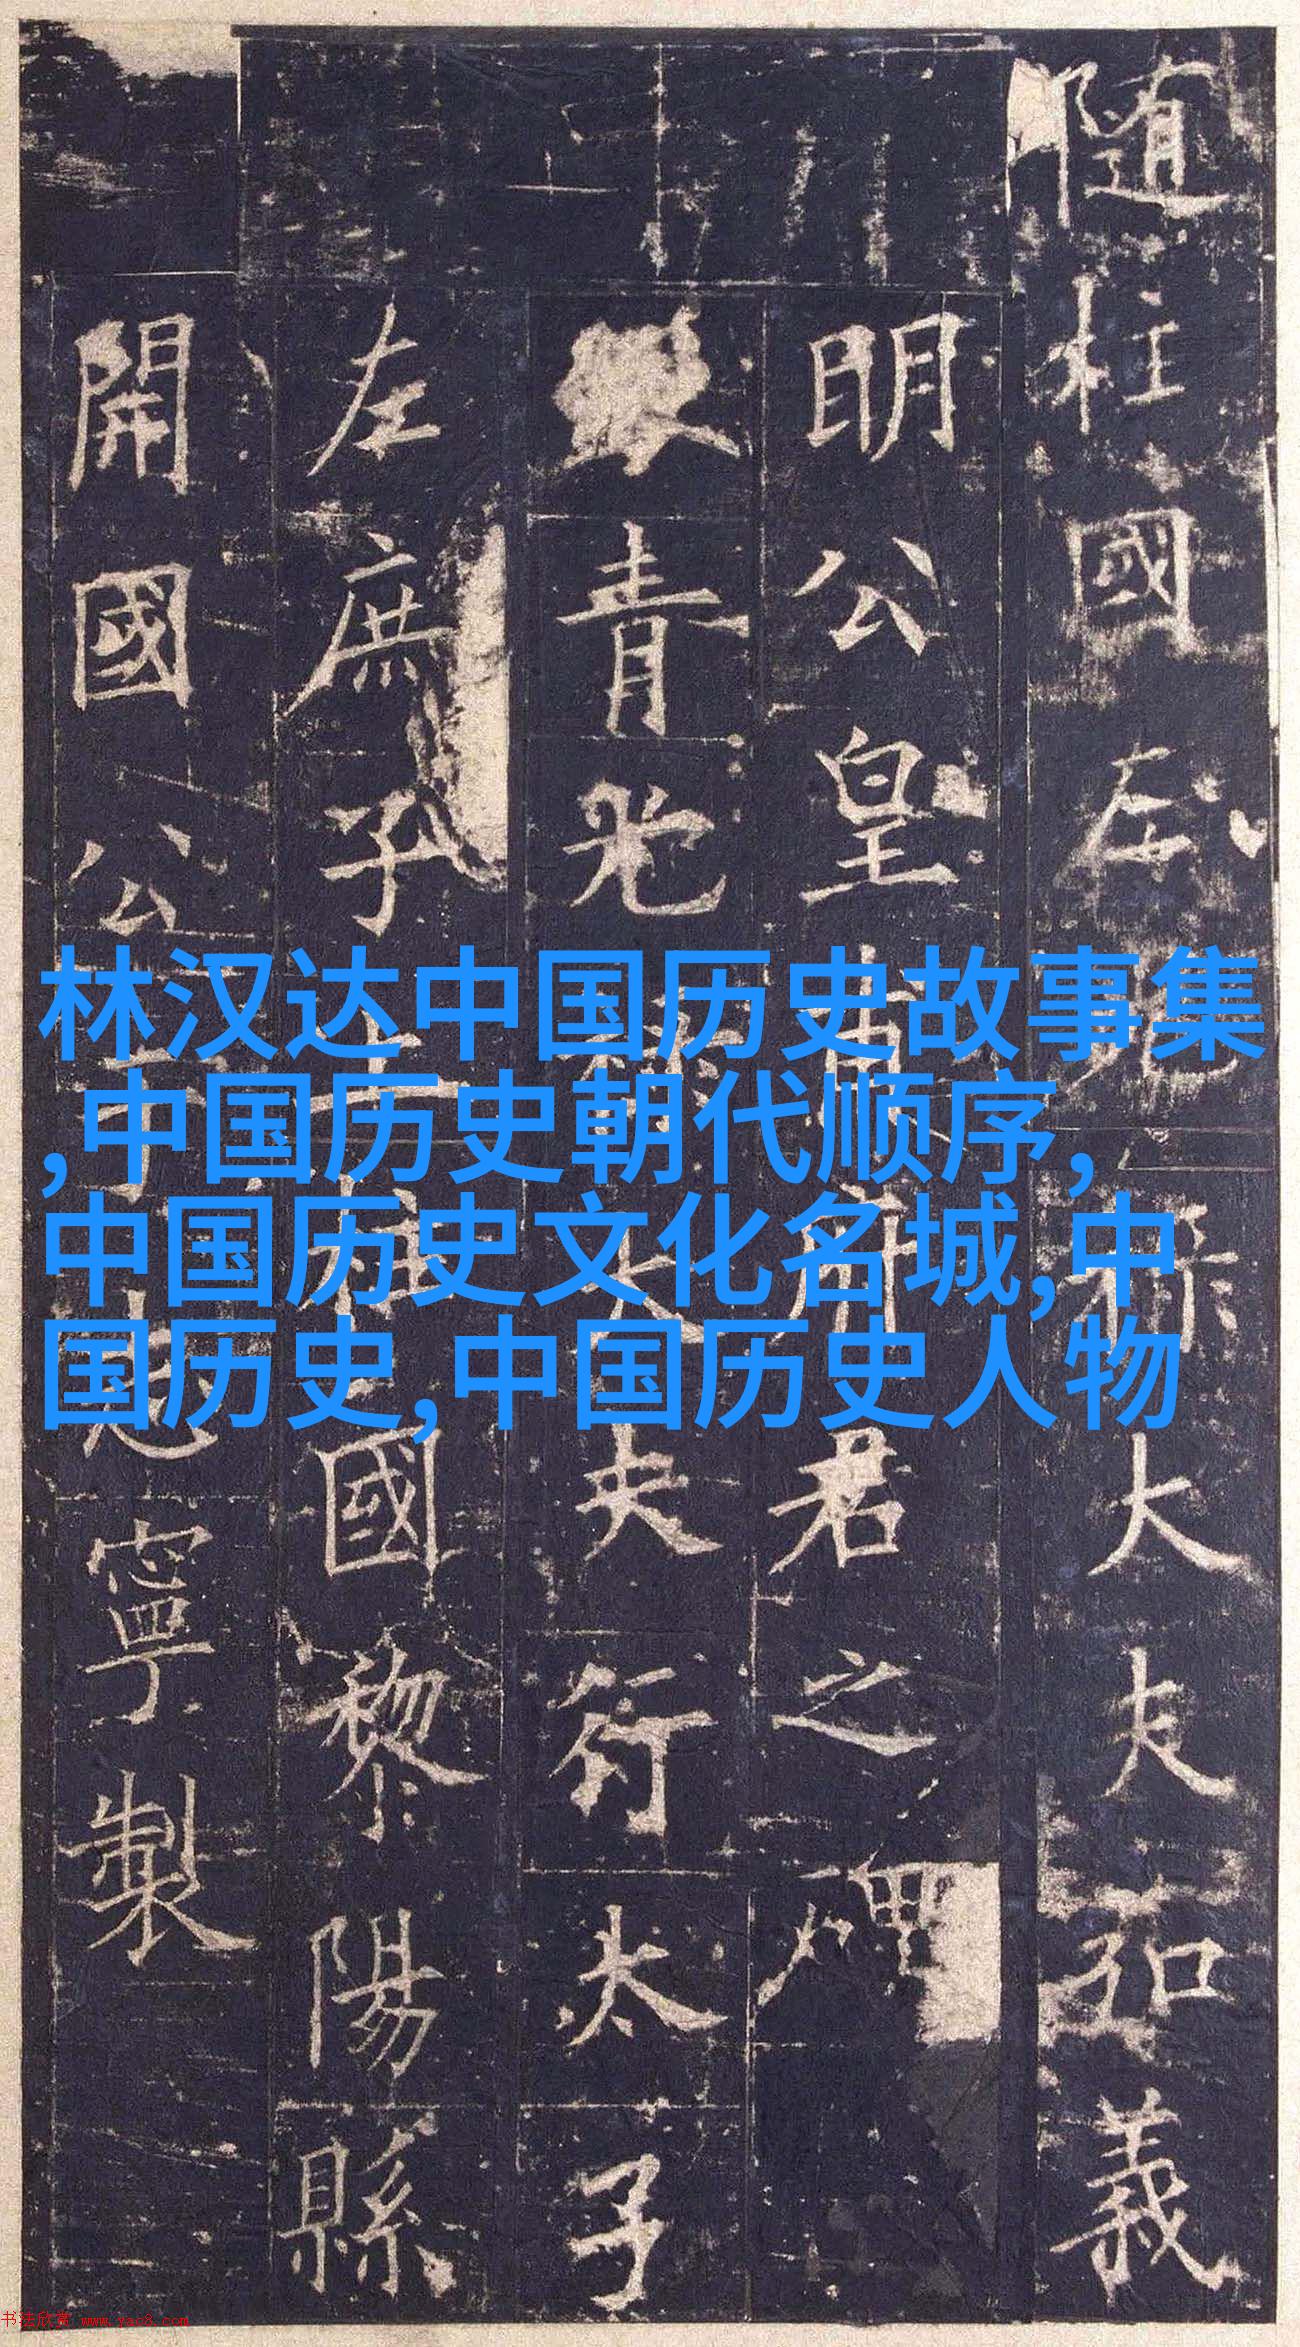 随柱國左光禄大夫弘義
明公皇甫府君之碑
銀青光禄大夫行太子
左庶子上柱國黎陽縣
開國公于志寧製
林汉达中国历史故事集
,中国历史朝代顺序,
中国历史文化名城,中
国历史,中国历史人物
书法欣赏 www.yac8.com